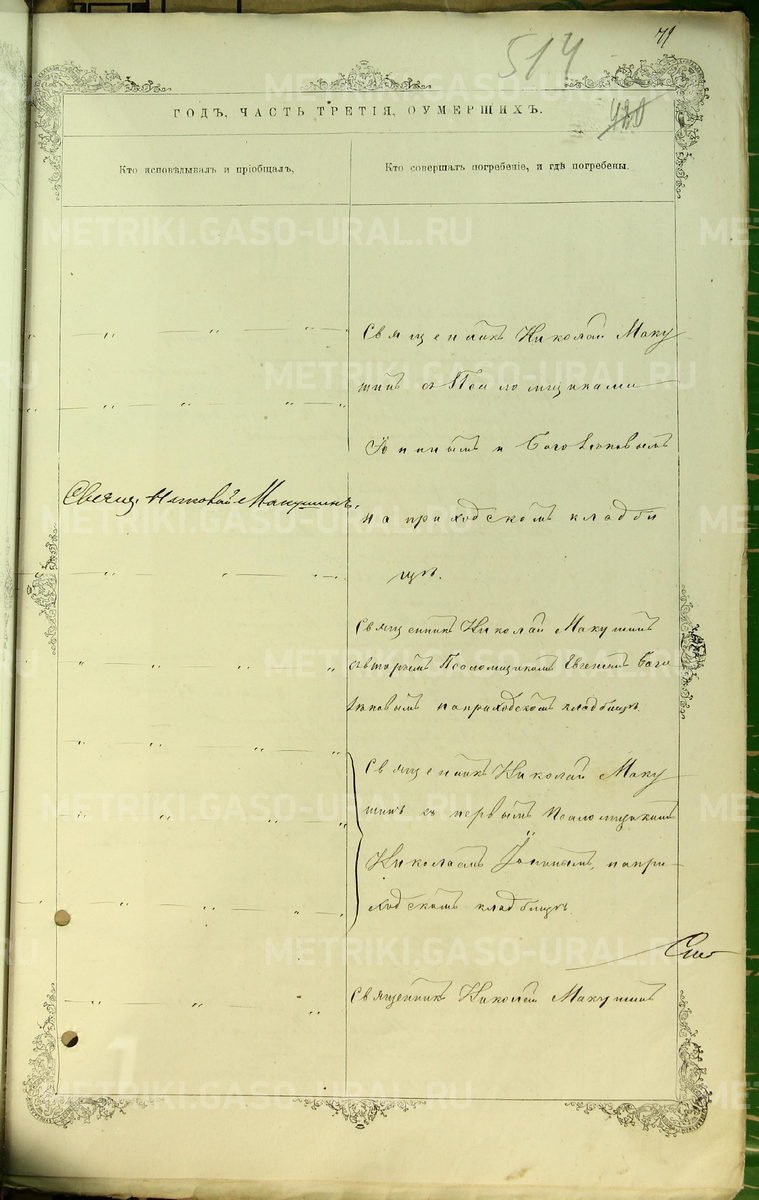 79
514
420
ГОДЪ, ЧАСТЬ ТРЕТІЯ, ОУМЕРШИХЪ.
Кто исповѣдывалъ и пріобщалъ,
Кто совершалъ погребеніе, и гдѣ погребены.
METRIKI.GASO-URAL.RU
Священникъ Николай Маку
шинъ съ Псаломщиками
и Боголѣповымъ
Священ. Николай Макушинъ.
на приходскомъ кладби
щѣ.
Священникъ Николай Макушинъ
съ вторымъ Псаломщикомъ Евгеніемъ Бого
лѣповымъ на приходскомъ кладбищѣ.
Священникъ Николай Маку
шинъ съ первымъ Псаломщикомъ
Николаемъ на при-
ходскомъ кладбищѣ.
Священникъ Николай Макушинъ